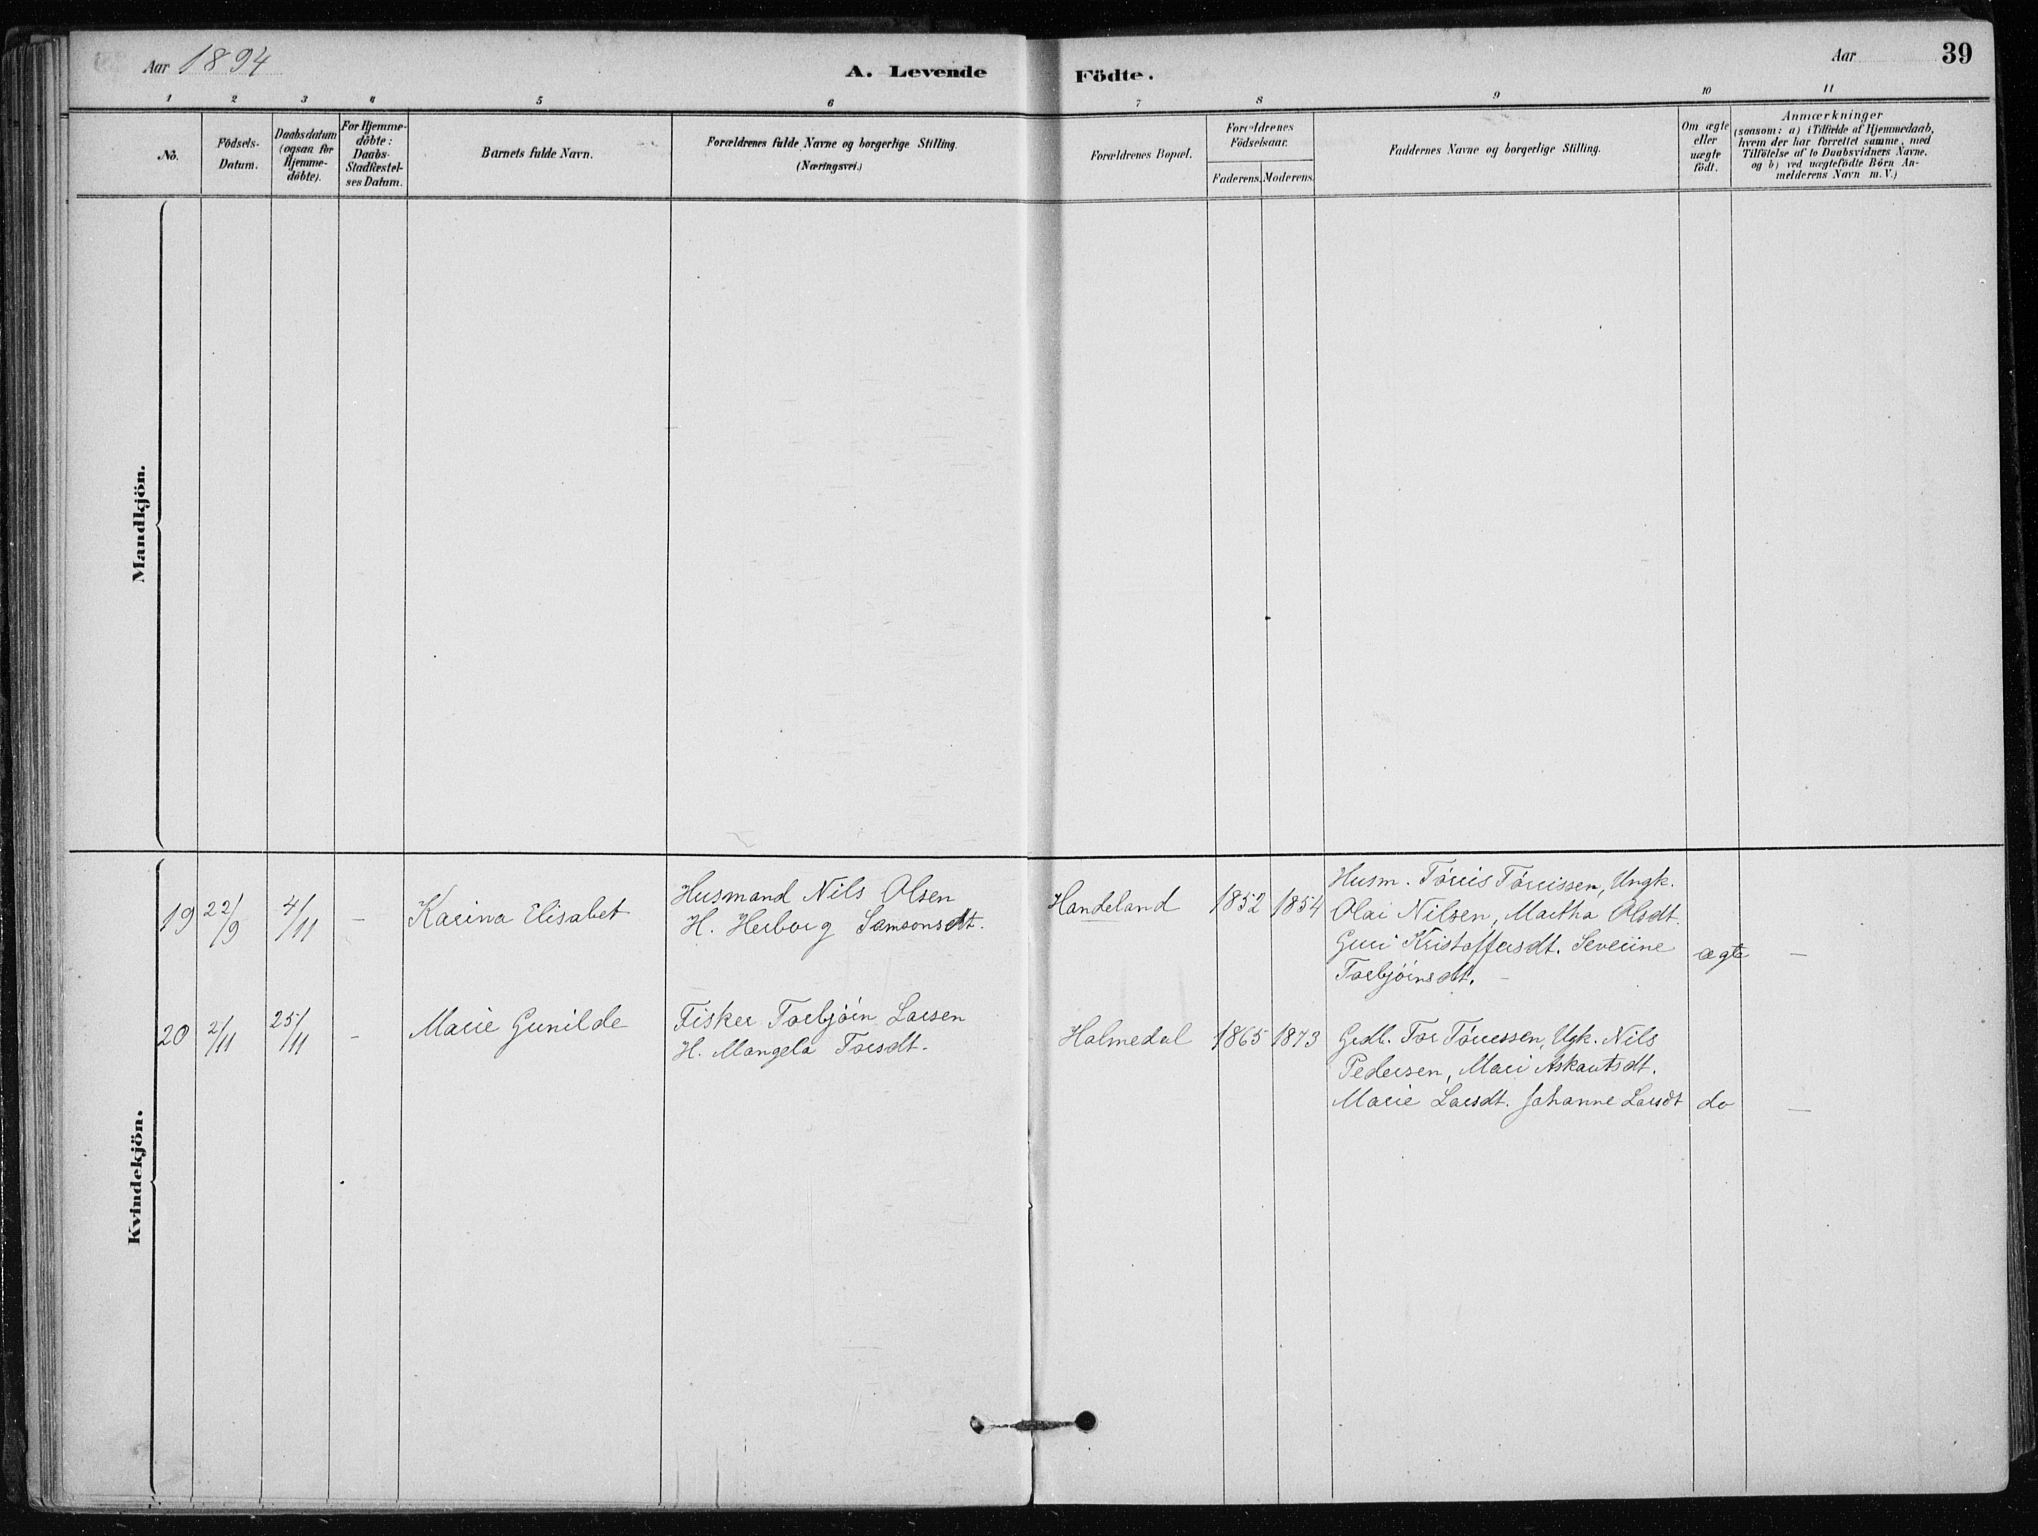 Aar 1894
A. Levende Födte.
Aar 39
1 2 3 4 5 6 7 8 9 10 11
No.
Födsels-Datum.
Daabsdatum (ogsaa for Hjemme-döbte).
For Hjemme-döbte: Daabs-Stadfæstel-ses Datum.
Barnets fulde Navn.
Forældrenes fulde Navne og borgerlige Stilling.
(Næringsvei.)
Forældrenes Bopæl.
Forældrenes Födselsaar.
Faderens. Moderens.
Faddernes Navne og borgerlige Stilling.
Om ægte eller uægte födt.
Anmærkninger
(saasom: a) i Tilfælde af Hjemmedaab,
hvem der har forrettet samme, med
Tilföielse af to Daabsvidners Navne,
og b) ved uægtefödte Börn An-
melderens Navn m. V.)
Mandkjön.
Kvindekjön.
19 22/9 4/11 – Karina Elisabet
Husmand Nils Olsen
H. Herborg Samsonsdt.
Handeland 1852 1854
Husm. Tönnis Tönnissen, Ungk.
Olai Nilsen, Martha Olsdt.
Guri Kristoffersdt. Severine
Torbjörnsdt. –
ægte –
20 2/11 25/11 – Marie Gunilde
Fisker Torbjörn Larsen
H. Mangela Torsdt.
Holmedal 1865 1873
Grdb. Tor Tönnessen, Ugk. Nils
Pedersen, Mari Askautsdt.
Marie Larsdt. Johanne Larsdt
do –